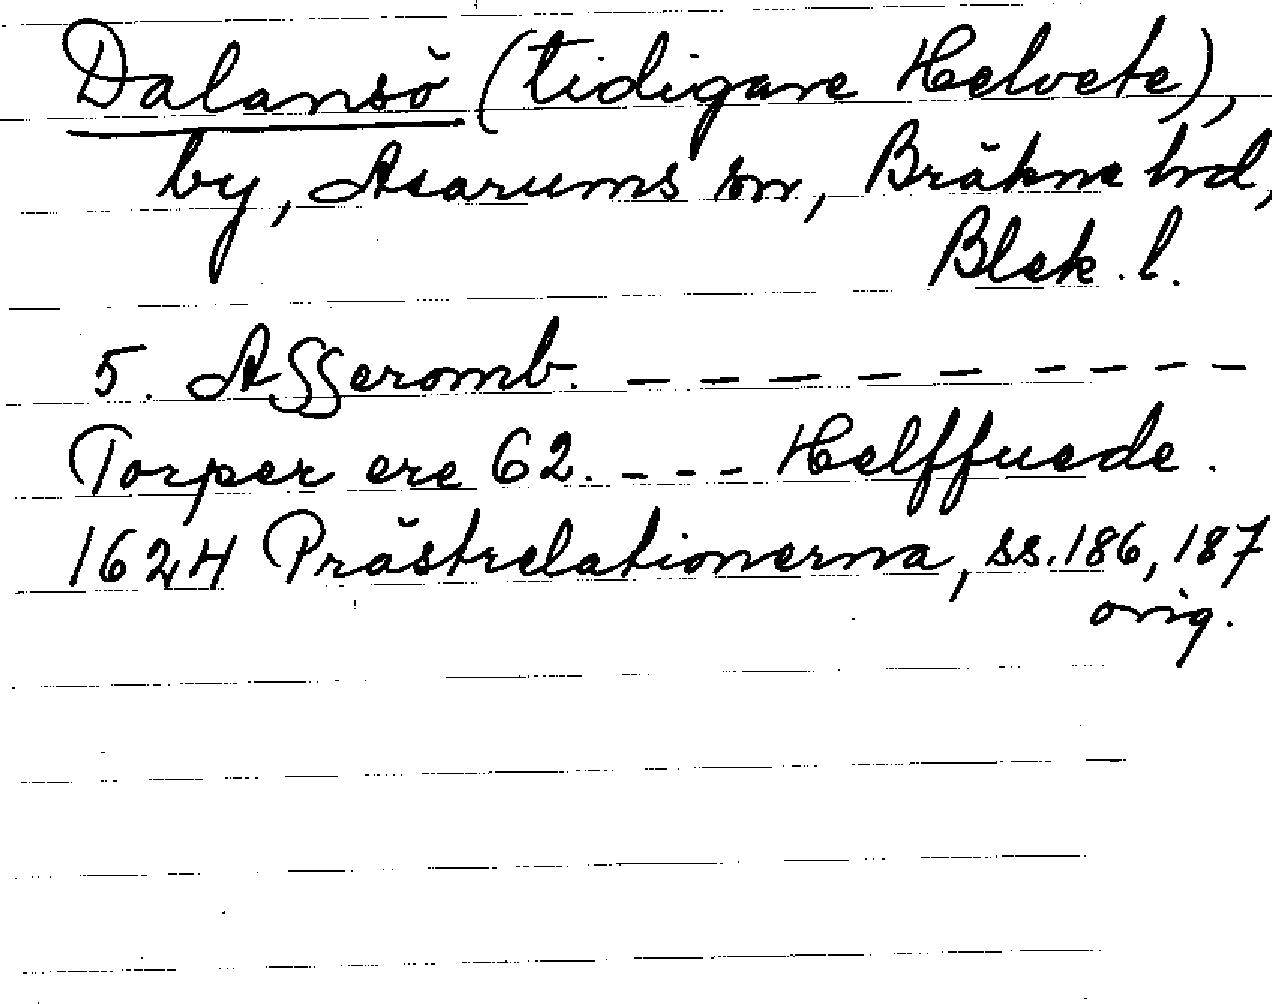 Dalansö (tidigare Helvete),
by, Asarums sn, Bräkne hd,
Blek. l.
5. Asseromb. – – – – – – – –
Torper ere 62. – – – Helffuede.
1624 Prästrelationerna, ss. 186, 187
orig.